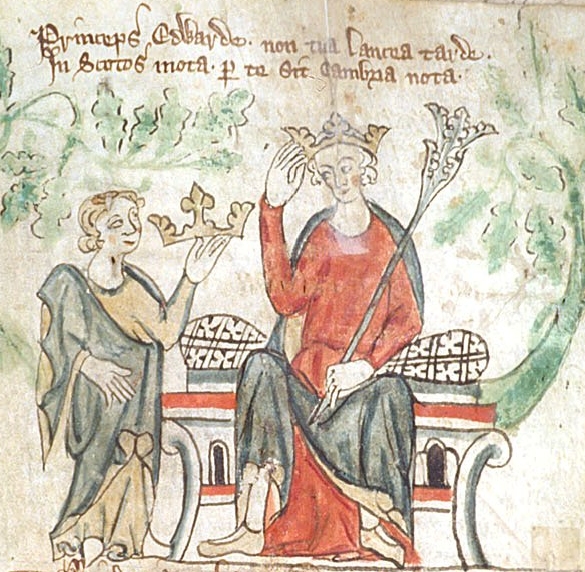 Princeps Edwarde · non tua lancea tarde ·
In Scotos mota · ꝑ te sit Cambria nota ·